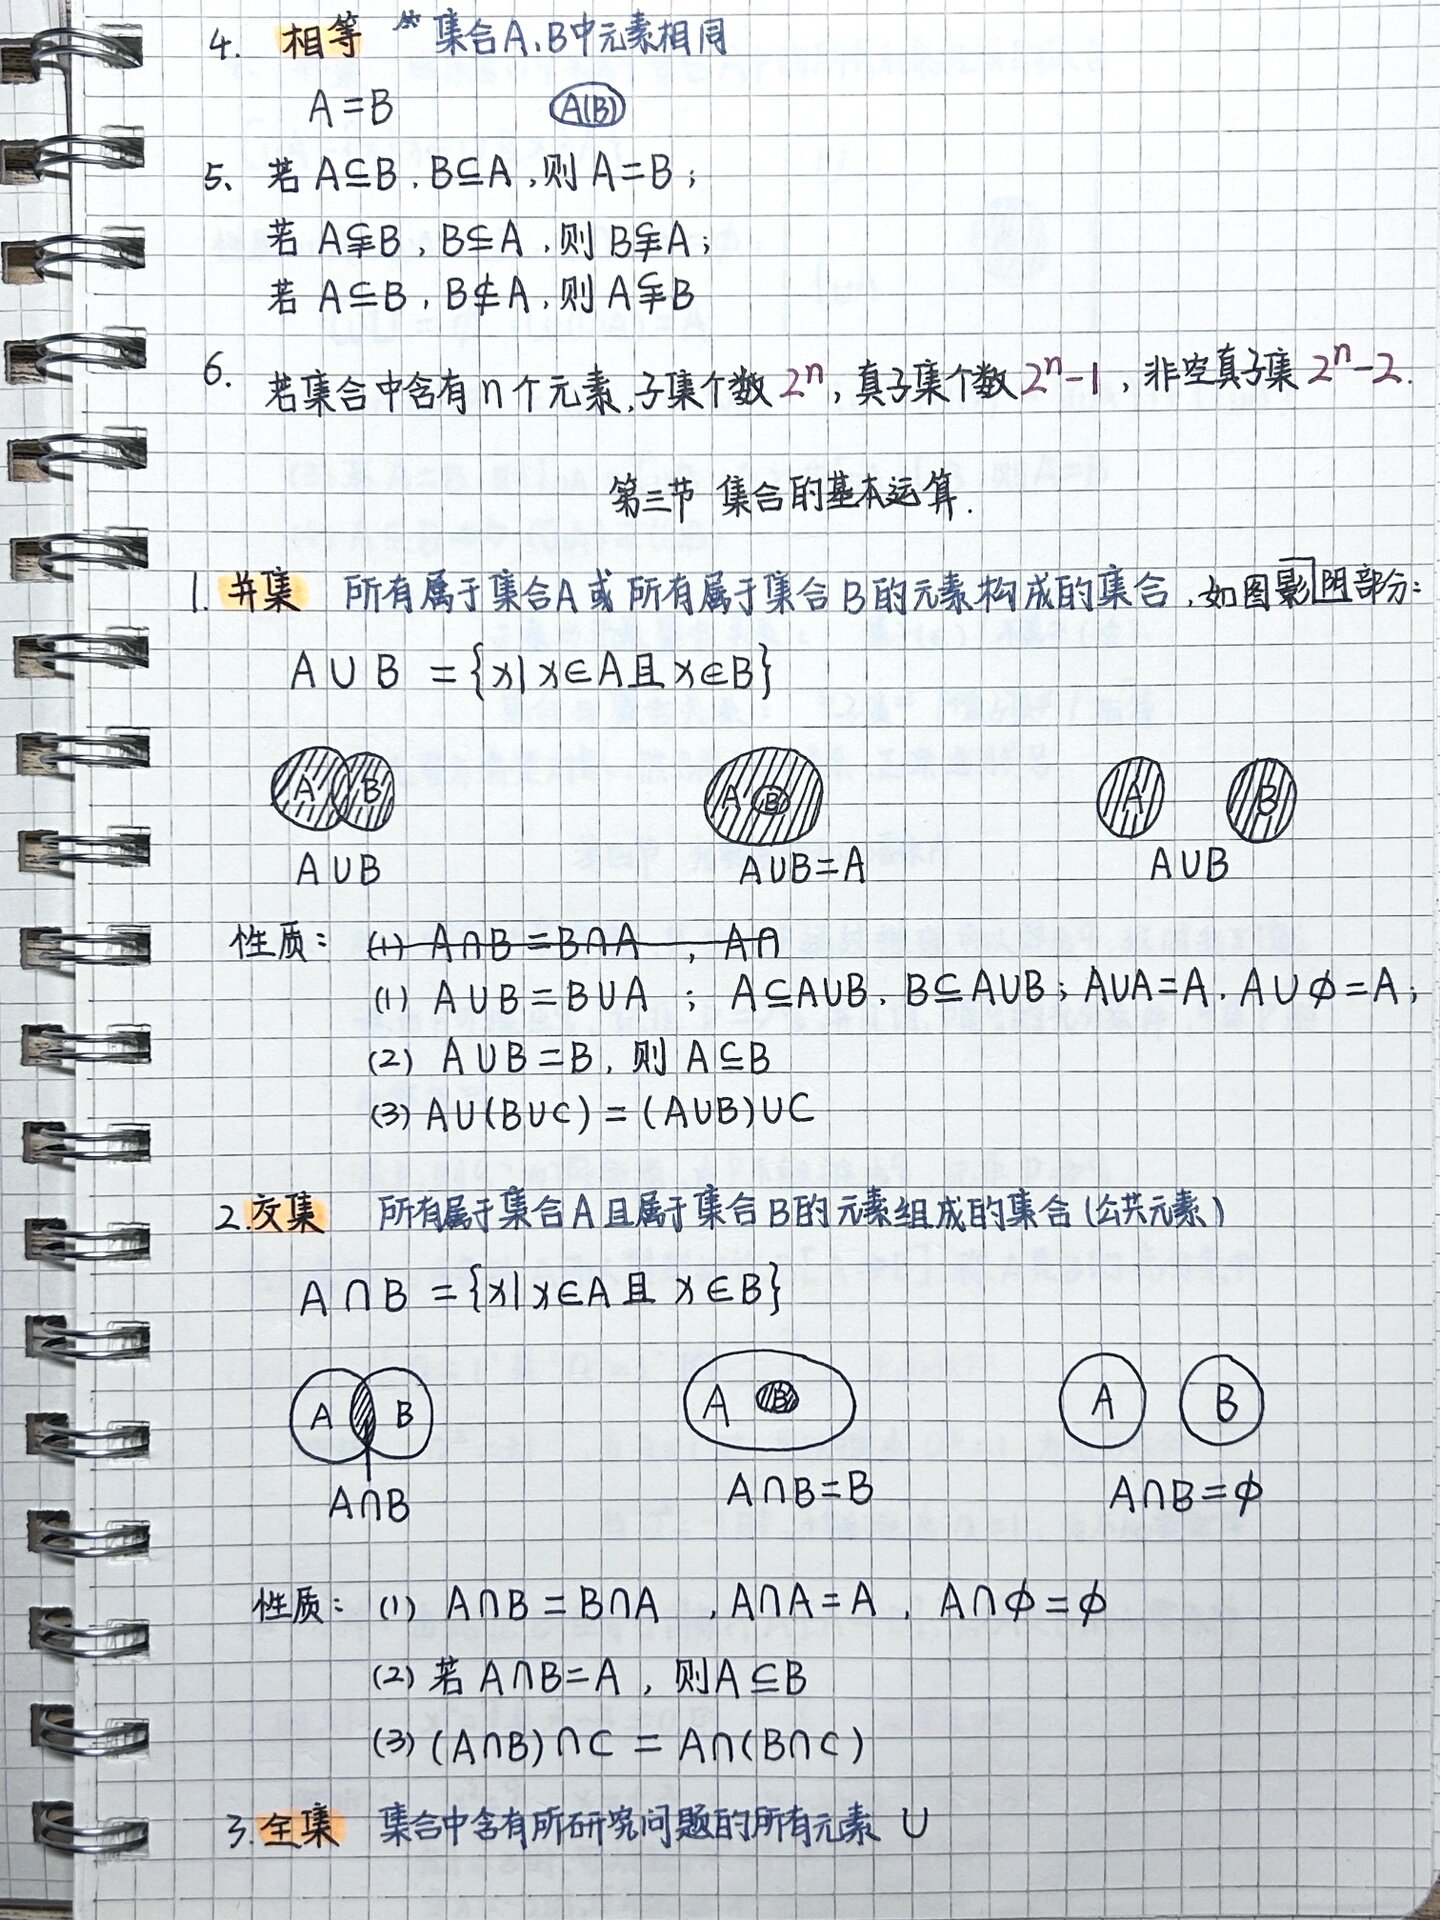 4. 相等 集合A、B中元素相同
A=B A(B)
5、若 A⊆B，B⊆A，则 A=B；
若 A⫋B，B⊆A，则 B⫋A；
若 A⊆B，B⊄A，则 A⫋B
6. 若集合中含有n个元素，子集个数 2ⁿ，真子集个数 2ⁿ-1，非空真子集 2ⁿ-2.
第三节 集合的基本运算.
1. 并集 所有属于集合A或所有属于集合B的元素构成的集合，如图影阴部分：
A∪B = {x|x∈A且x∈B}
A B A B A B
A∪B A∪B=A A∪B
性质：(1) A∩B=B∩A ，A∩
(1) A∪B=B∪A ；A⊆A∪B，B⊆A∪B；A∪A=A，A∪ϕ=A；
(2) A∪B=B，则 A⊆B
(3) A∪(B∪C)=(A∪B)∪C
2.交集 所有属于集合A且属于集合B的元素组成的集合(公共元素)
A∩B = {x|x∈A且 x∈B}
A B A B A B
A∩B A∩B=B A∩B=ϕ
性质：(1) A∩B=B∩A ，A∩A=A，A∩ϕ=ϕ
(2) 若 A∩B=A，则A⊆B
(3) (A∩B)∩C = A∩(B∩C)
3.全集 集合中含有所研究问题的所有元素 U